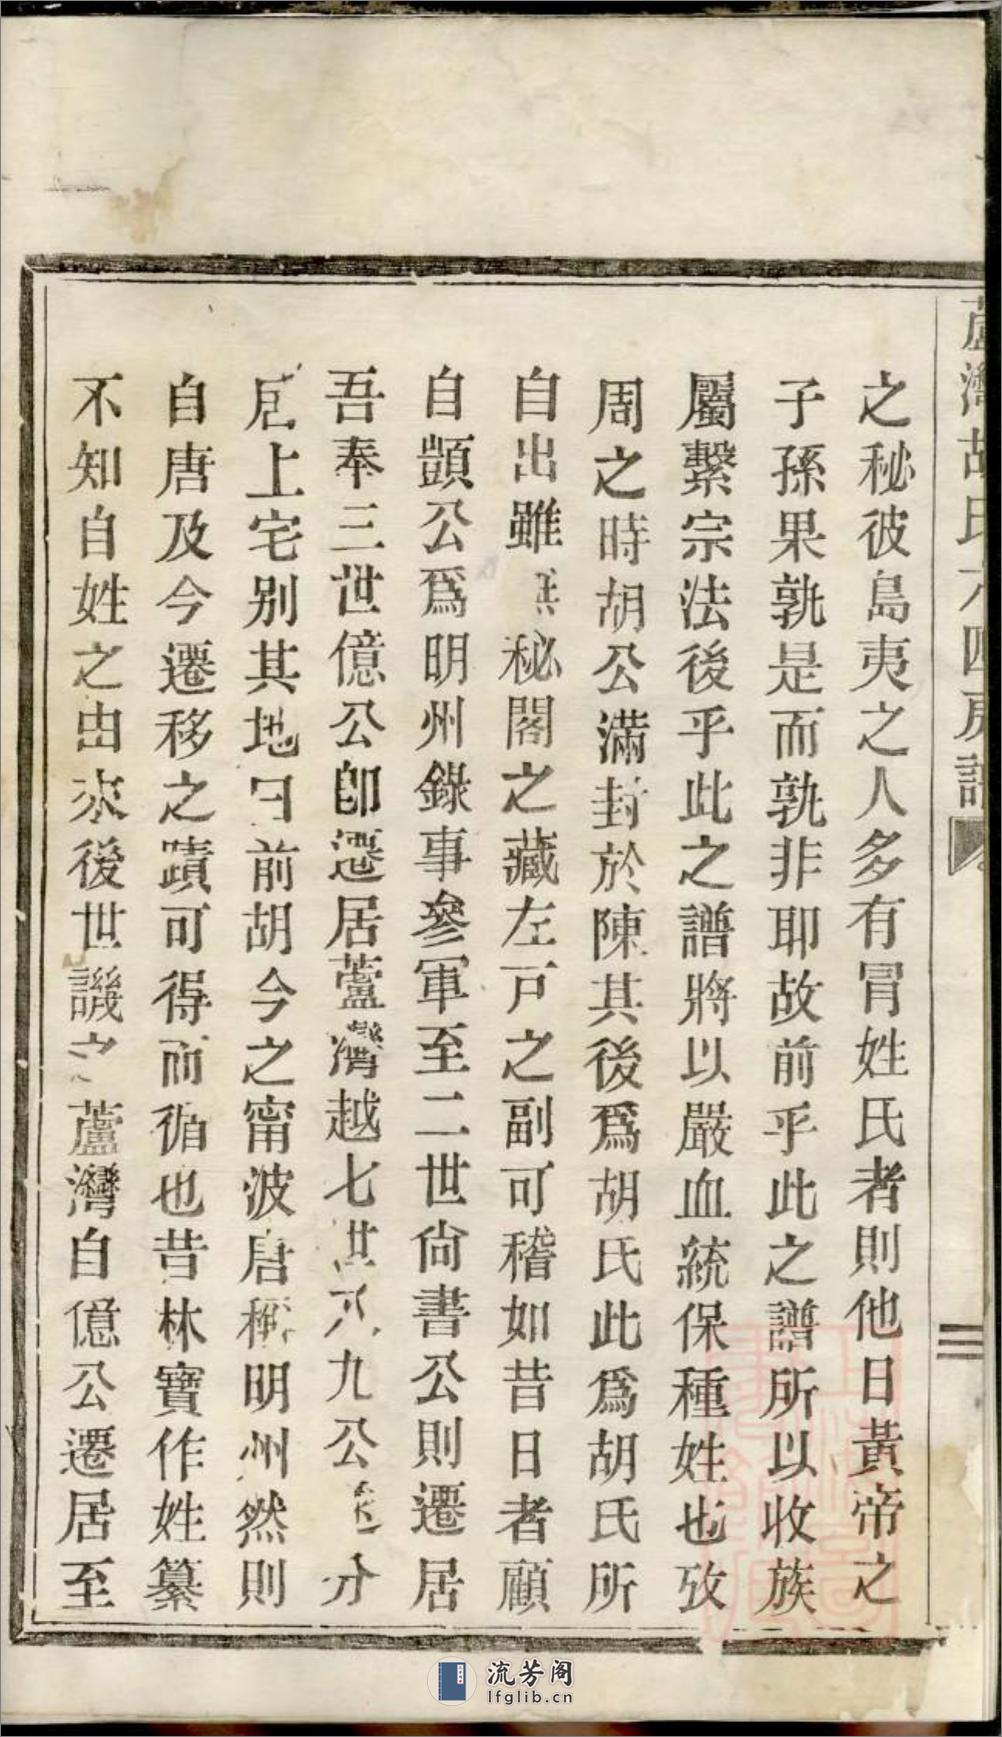 蘆灣胡氏六四房譜
之秘彼島夷之人多有冒姓氏者則他日黃帝之
子孫果孰是而孰非耶故前乎此之譜所以收族
屬繫宗法後乎此之譜將以嚴血統保種姓也攷
周之時胡公滿封於陳其後爲胡氏此爲胡氏所
自出雖無秘閣之藏左戸之副可稽如昔日者顧
自顗公爲明州錄事參軍至二世尙書公則遷居
吾奉三世億公卽遷居蘆灣越七世六九公遷分
居上宅别其地曰前胡今之甯波唐稱明州然則
自唐及今遷移之蹟可得而循也昔林寶作姓纂
不知自姓之由來後世譏之蘆灣自億公遷居至
流芳阁
lfglib.cn